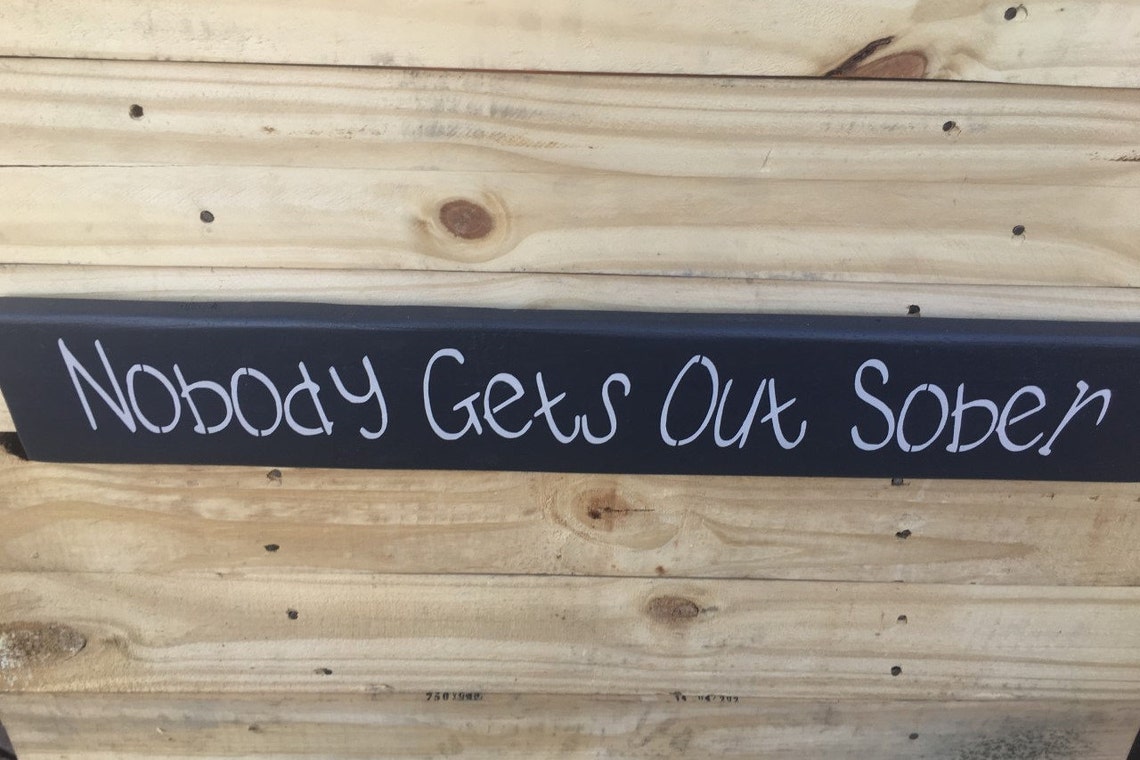 Nobody Gets Out Sober